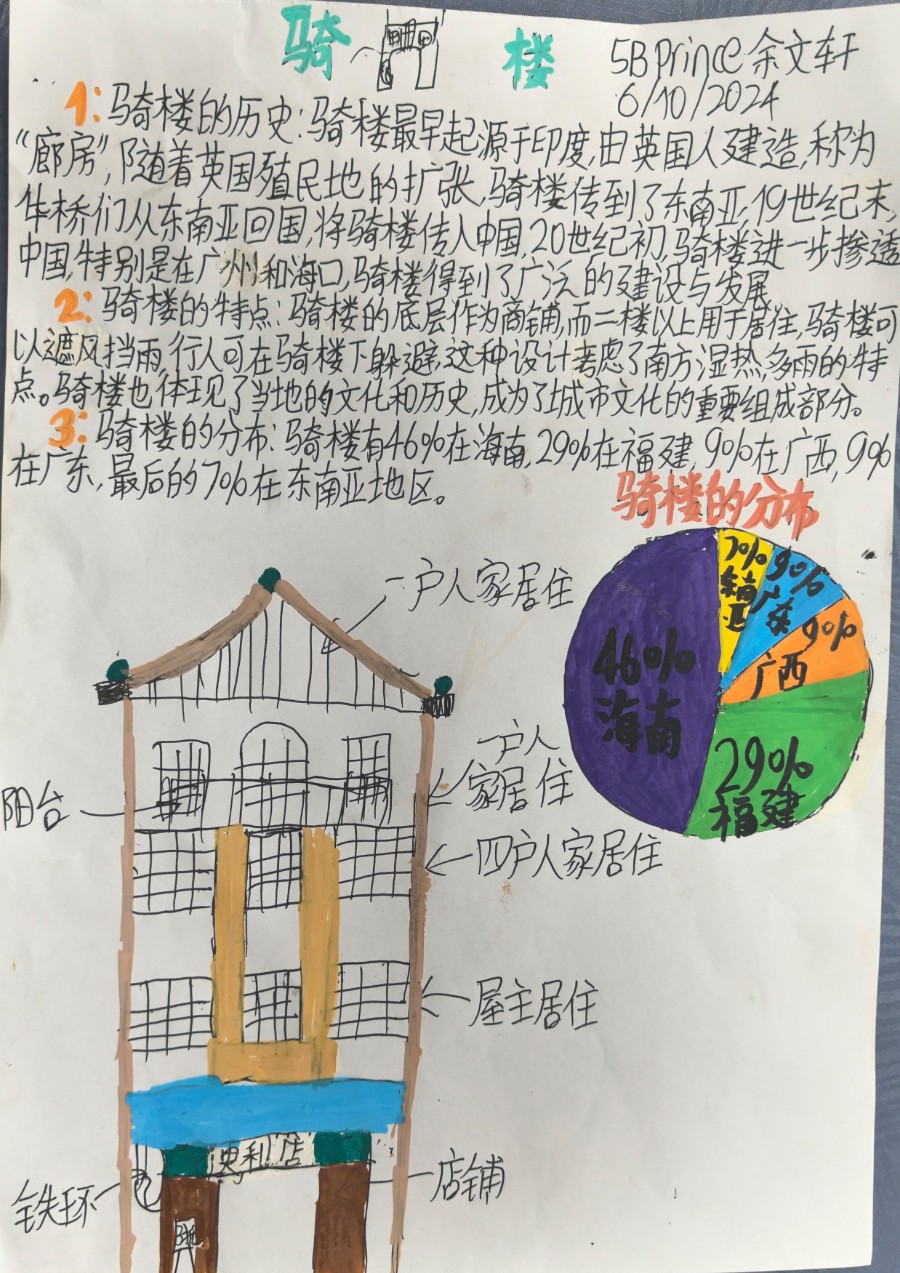 骑 楼
5B Prince 余文轩
6/10/2024
1: 骑楼的历史:骑楼最早起源于印度,由英国人建造,称为
“廊房”,随着英国殖民地的扩张,骑楼传到了东南亚,19世纪末,
华桥们从东南亚回国,将骑楼传入中国,20世纪初,骑楼进一步掺透
中国,特别是在广州和海口,骑楼得到了广泛的建设与发展
2: 骑楼的特点:骑楼的底层作为商铺,而二楼以上用于居住,骑楼可
以遮风挡雨,行人可在骑楼下躲避,这种设计考虑了南方湿热,多雨的特
点。骑楼也体现了当地的文化和历史,成为了城市文化的重要组成部分。
3: 骑楼的分布:骑楼有46%在海南,29%在福建,9%在广西,9%
在广东,最后的7%在东南亚地区。
骑楼的分布
7%
9%
广东
9%
广西
46%
海南
29%
福建
一户人家居住
一户人
家居住
阳台
四户人家居住
屋主居住
便利店
店铺
铁环